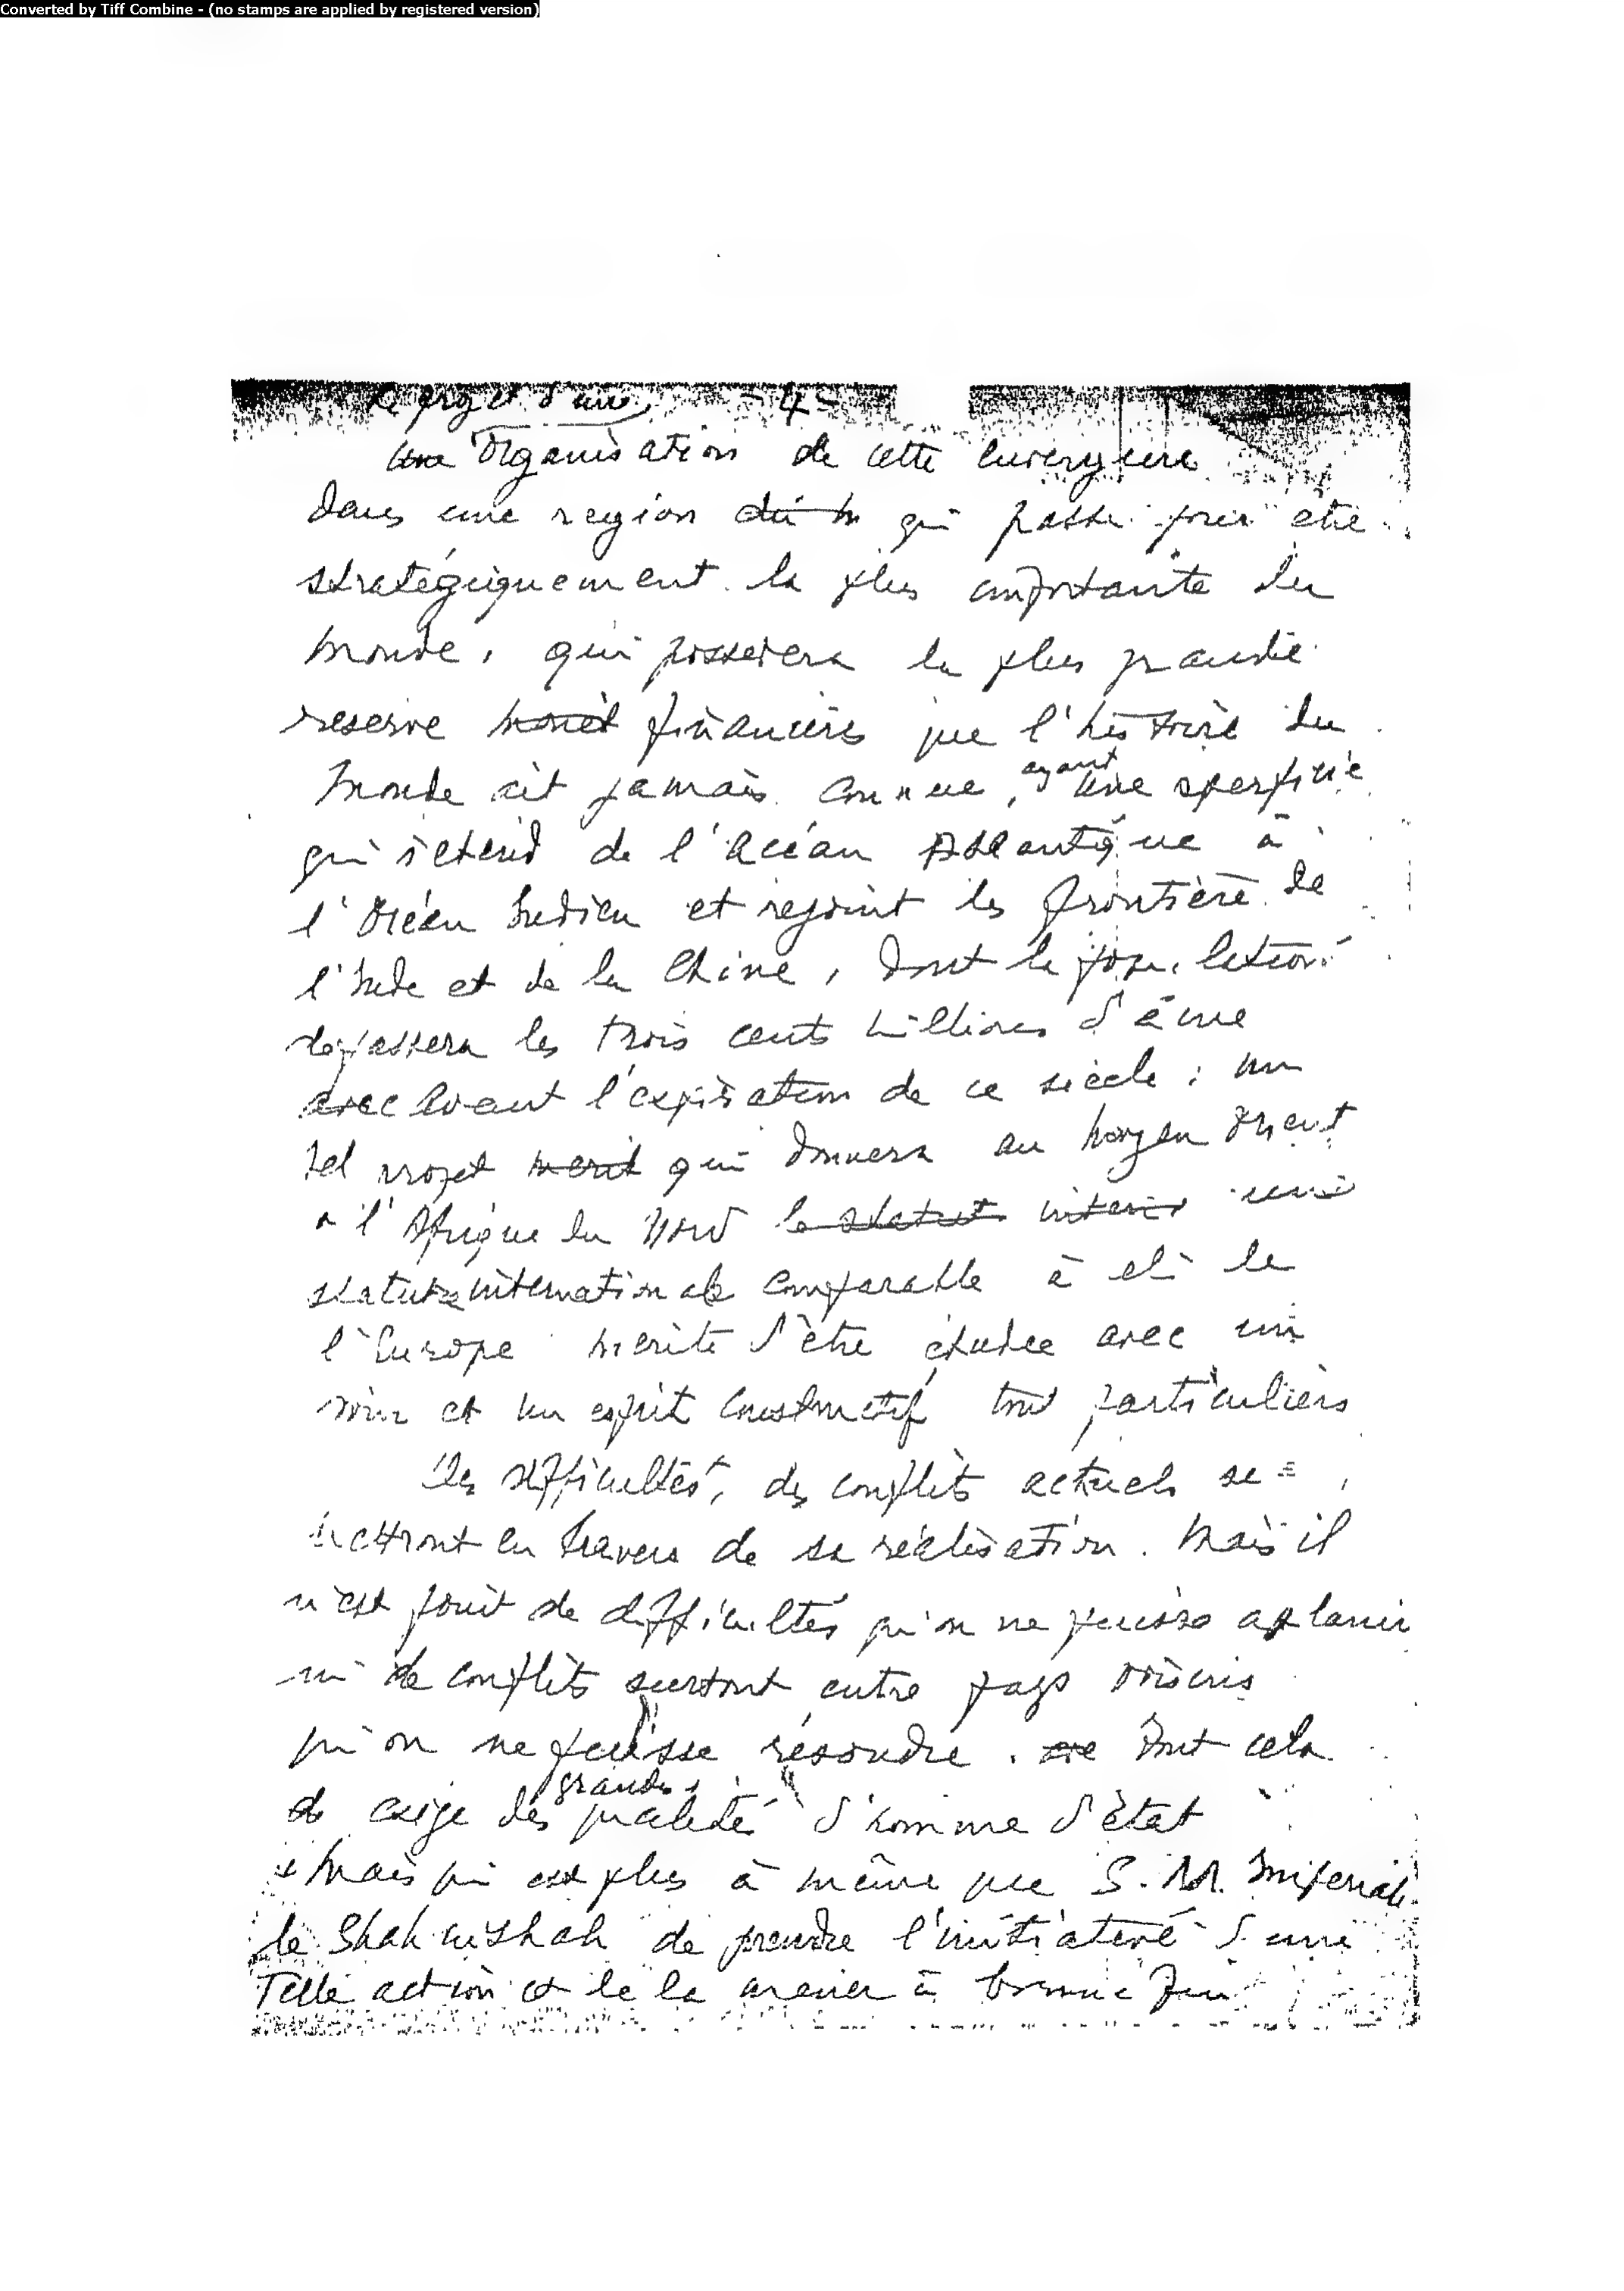 Converted by Tiff Combine - (no stamps are applied by registered version)
Le projet d'une - 4 -
Une Organisation de cette envergure
dans une region du m qui passe pour etre
stratégiquement la plus importante du
monde, qui possedera la plus grande
reserve monet financière que l'histoire du
monde ait jamais connue, ayant une sperficie
qui s'etend de l'Océan Atlantique à
l'Océan Indien et rejoint les frontière de
l'Inde et de la Chine, dont la population
depassera les trois cents millions d'âme
avec avant l'expiration de ce siècle; un
tel projet merit qui donnera au Moyen Orient
a l'Afrique du Nord le statut inter une
stature internationale comparable à celi de
l'Europe merite d'être étudee avec un
soin et un esprit constructif tout particuliers
Des difficultés, des conflits actuels se =
mettront en travers de sa réalisation. Mais il
n'est point de difficultés qu'on ne puisse aplanir
ni de conflits surtout entre pays voisins
qu'on ne puisse résoudre. Tout cela
exige des grandes qualité d'homme d'état
Mais qui est plus à même que S. M. Imperiale
le Shahinshah de prendre l'initiative d'une
Telle action et de la mener à bonne fin